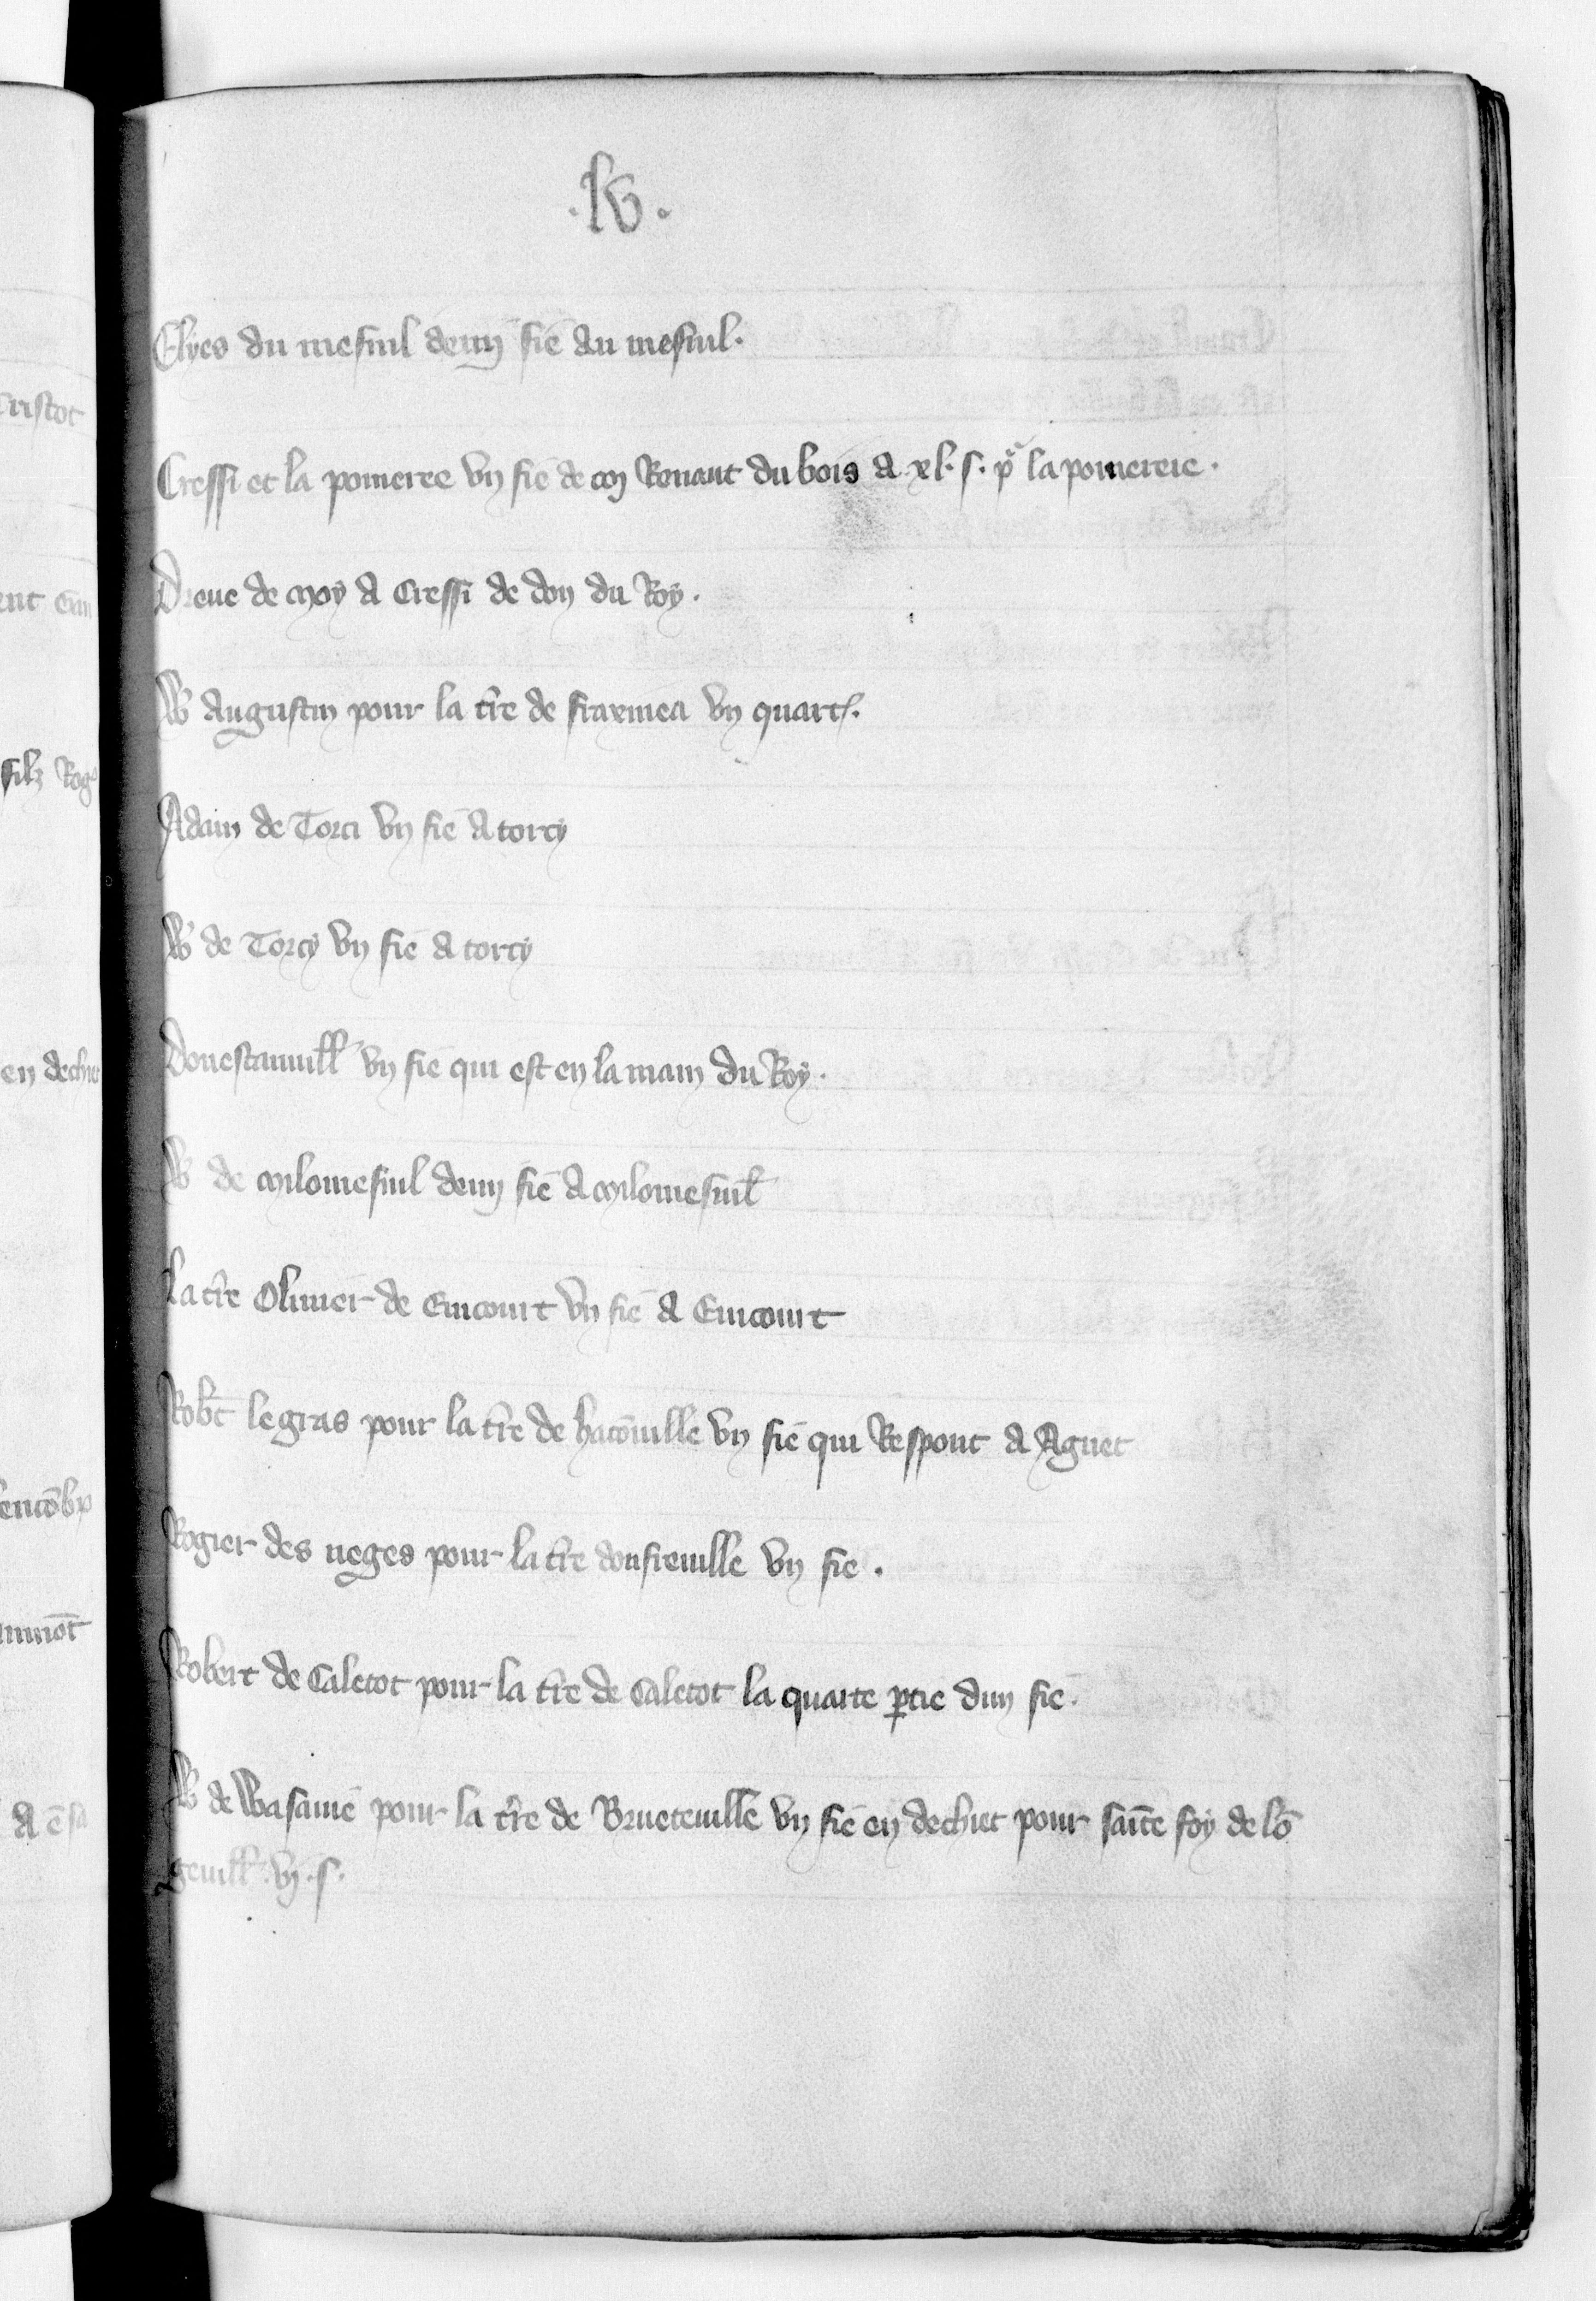 .lv.
Elyes du mesnil demy fie au mesnil.
Cressi et la pomeree vn fie de coy Renaut du bois a xl. s. pͬ la pomereie.
Dreue de moy a Cressi de don du Roy.
W augustin pour la tr̄e de fraxinea vn quart.
Adam de Torci vn fie A torcy
W de Torcy vn fie A torcy
Donestanuill̄ vn fie qui est en la main du Roy.
W de milomesnil demy fie A milomesnil̄
la tr̄e Oliuier de Eincourt vn fie A Eincourt
Rob̄t le gras pour la tr̄e de hacōuille vn fie qui Respont A Aguet
Rogier des neges pour la tr̄e donfreuille vn fie.
Robert de Caletot pour la tr̄e de Caletot la quarte ꝑtie dun fie.
W de Wasamē pour la tr̄e de Brueteuille vn fie en dechiet pour saīte foy de lō
geuill̄. vj. s.
Cristot
filz Rog
en dechiet
encōbr